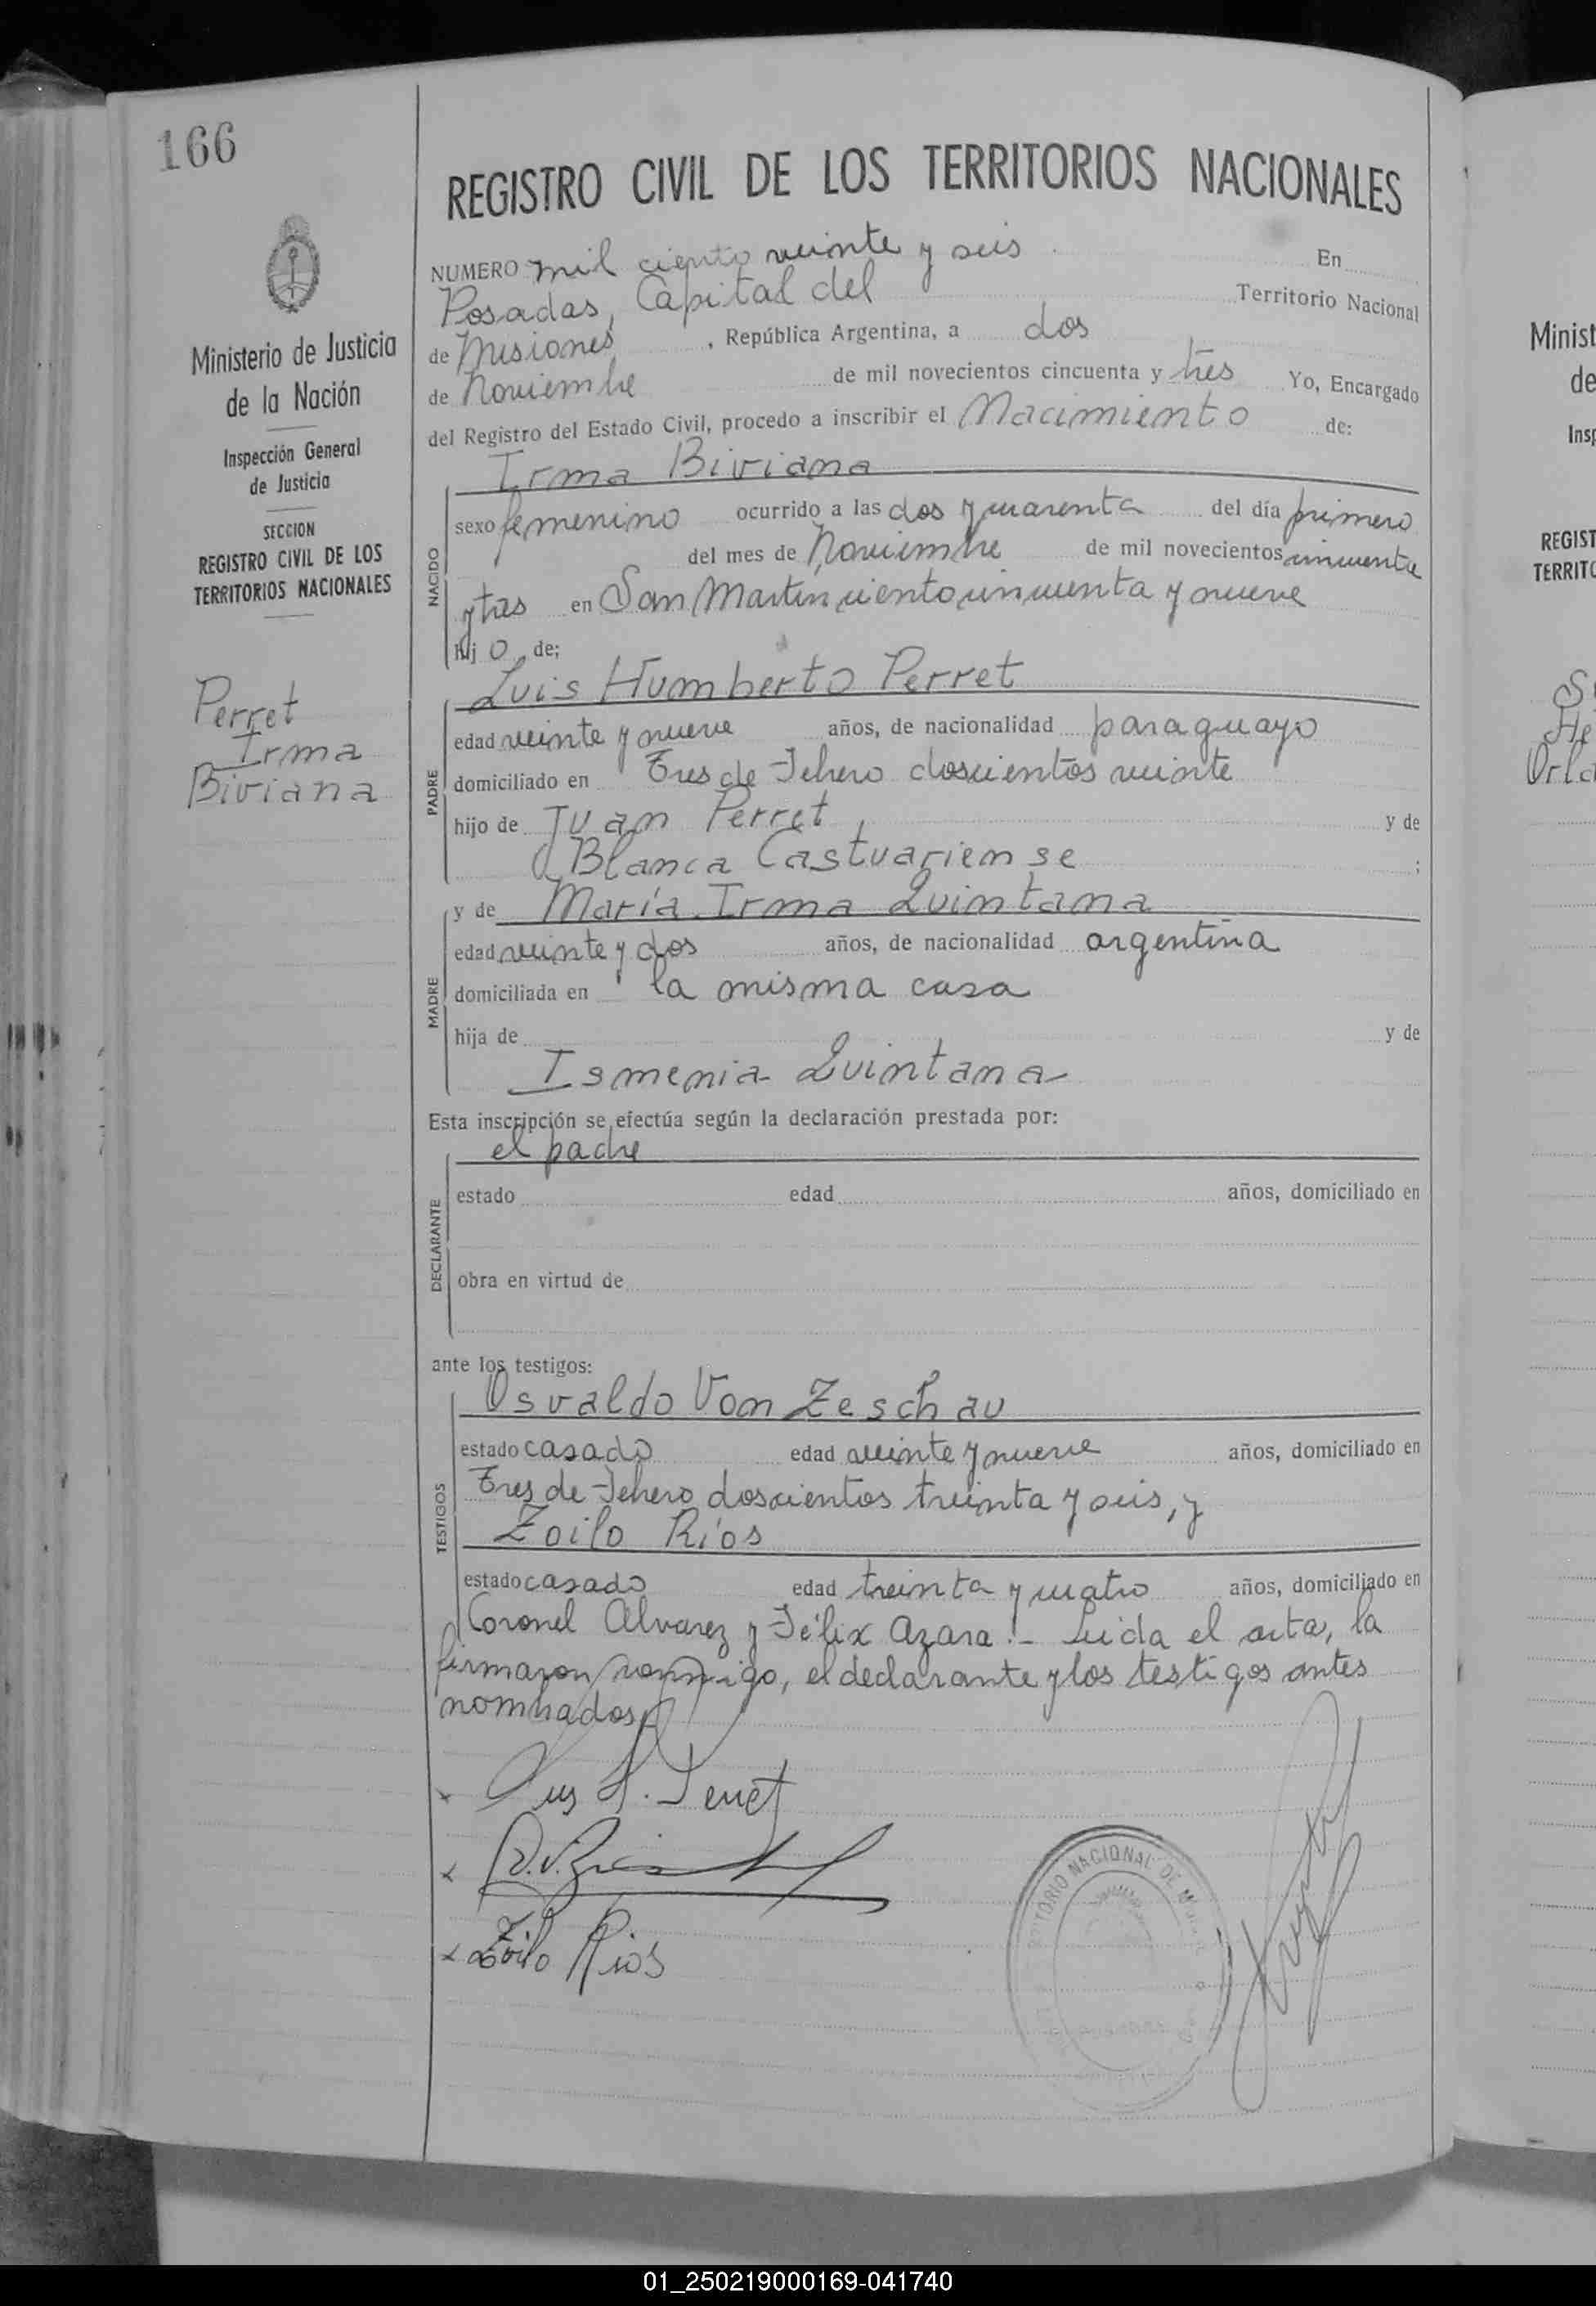 166
REGISTRO CIVIL DE LOS TERRITORIOS NACIONALES
Ministerio de Justicia
de la Nación
Inspección General
de Justicia
SECCION
REGISTRO CIVIL DE LOS
TERRITORIOS NACIONALES
Perret
Irma
Biviana
NUMERO mil ciento veinte y seis En
Posadas, Capital del Territorio Nacional
de Misiones, República Argentina, a dos
de Noviembre de mil novecientos cincuenta y tres Yo, Encargado
del Registro del Estado Civil, procedo a inscribir el Nacimiento de:
Irma Biviana
NACIDO
sexo femenino ocurrido a las dos y cuarenta del día primero
del mes de Noviembre de mil novecientos cincuenta
y tres en San Martín ciento cincuenta y nueve
hij o de;
Luis Humberto Perret
PADRE
edad veinte y nueve años, de nacionalidad paraguayo
domiciliado en Tres de Febrero doscientos veinte
hijo de Juan Perret y de
Blanca Castuariense ;
y de María Irma Quintana
MADRE
edad veinte y dos años, de nacionalidad argentina
domiciliada en la misma casa
hija de y de
Ismenia Quintana
Esta inscripción se efectúa según la declaración prestada por:
el padre
DECLARANTE
estado edad años, domiciliado en
obra en virtud de
ante los testigos:
Osvaldo Von Zeschau
TESTIGOS
estado casado edad veinte y nueve años, domiciliado en
Tres de Febrero doscientos treinta y seis, y
Zoilo Ríos
estado casado edad treinta y cuatro años, domiciliado en
Coronel Alvarez y Félix Azara.- Leida el acta, la
firmaron conmigo, el declarante y los testigos antes
nombrados
Luis H. Perret
Zoilo Rios
TERRITORIO NACIONAL DE
Minist
de
Insp
REGIST
TERRITO
Orla
01_250219000169-041740